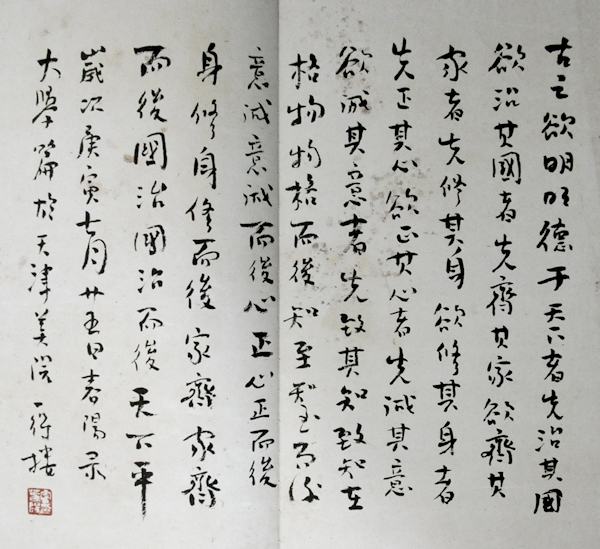 古之欲明明德于天下者先治其國
欲治其國者先齊其家欲齊其
家者先修其身欲修其身者
先正其心欲正其心者先誠其意
欲誠其意者先致其知致知在
格物物格而後知至知至而後
意誠意誠而後心正心正而後
身修身修而後家齊家齊
而後國治國治而後天下平
歲次庚寅七月廿五日春陽录
大學篇於天津美院一得樓